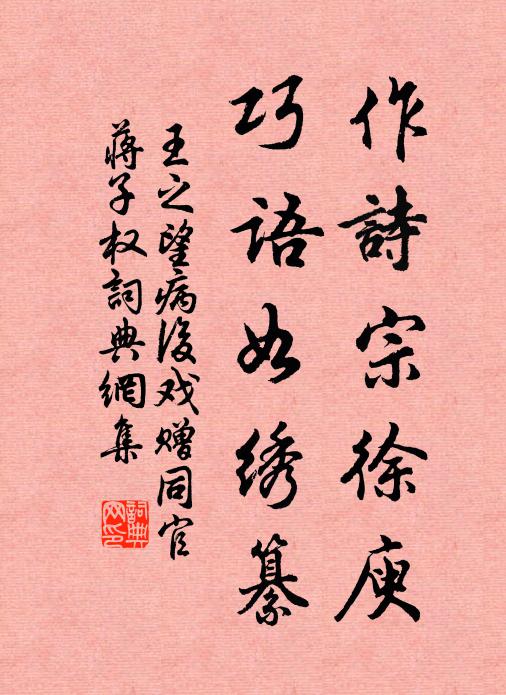 作詩宗徐庾
巧語如綉纂
王之望病後戏贈同官
蔣子权詞典網集
詞典网印